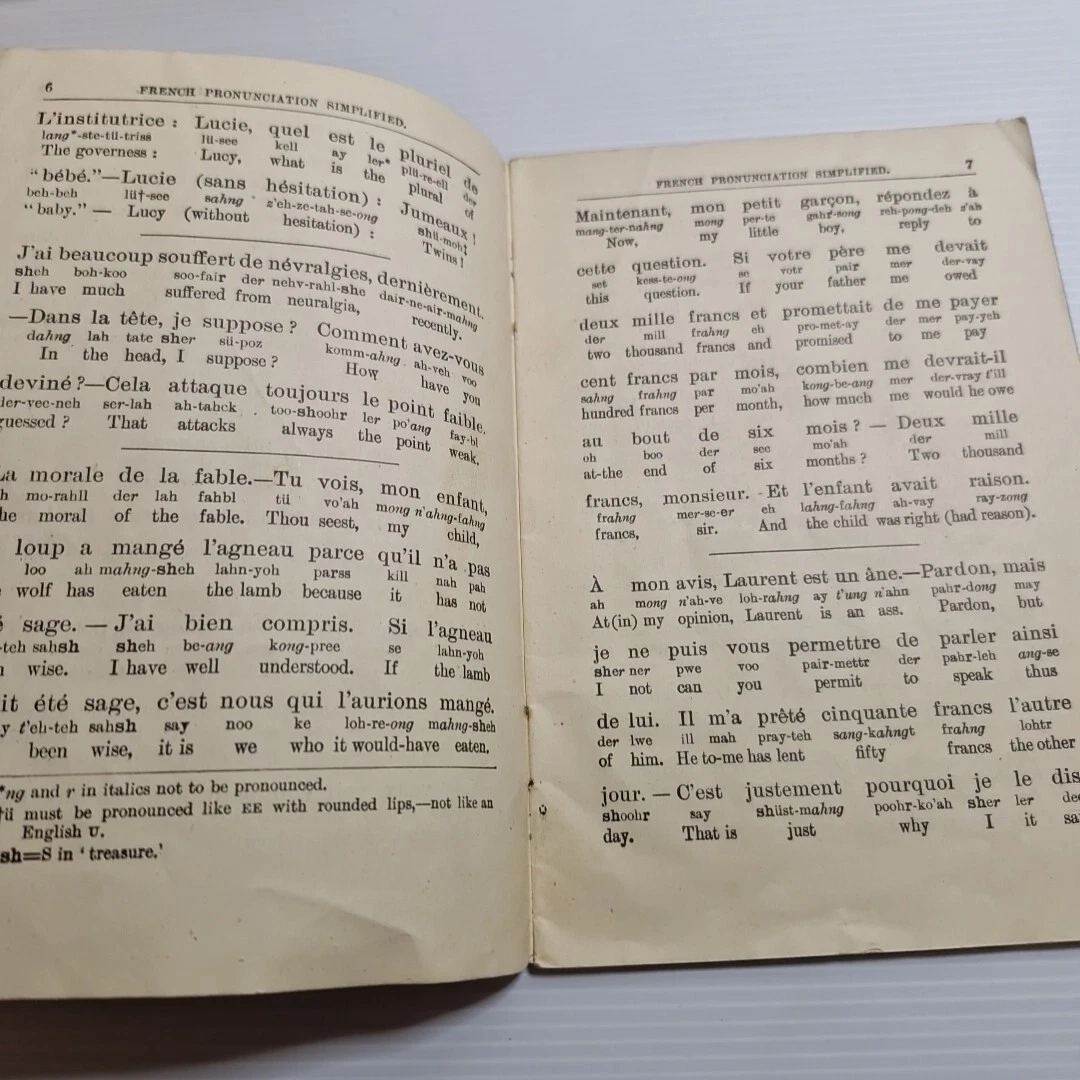 6
FRENCH PRONUNCIATION SIMPLIFIED.
L'institutrice : Lucie, quel est le pluriel de
lang*-ste-tü-triss lü-see kell ay ler* plü-re-ell der
The governess : Lucy, what is the plural of
“ bébé.”—Lucie (sans hésitation) : Jumeaux !
beh-beh lü†-see sahng z'eh-ze-tah-se-ong shü-moh‡
“ baby.” — Lucy (without hesitation) : Twins !
J'ai beaucoup souffert de névralgies, dernièrement.
sheh boh-koo soo-fair der nehv-rahl-she dair-ne-air-mahng
I have much suffered from neuralgia, recently.
—Dans la tête, je suppose ? Comment avez-vous
dahng lah tate sher sü-poz komm-ahng ah-veh voo
In the head, I suppose ? How have you
deviné ?—Cela attaque toujours le point faible.
der-vee-neh ser-lah ah-tahck too-shoohr ler po'ang fay-bl
guessed ? That attacks always the point weak.
La morale de la fable.—Tu vois, mon enfant,
mo-rahll der lah fahbl tü vo'ah mong n'ahng-fahng
the moral of the fable. Thou seest, my child,
loup a mangé l'agneau parce qu'il n'a pas
loo ah mahng-sheh lahn-yoh parss kill nah pah
wolf has eaten the lamb because it has not
sage. — J'ai bien compris. Si l'agneau
-teh sahsh sheh be-ang kong-pree se lahn-yoh
wise. I have well understood. If the lamb
it été sage, c'est nous qui l'aurions mangé.
y t'eh-teh sahsh say noo ke loh-re-ong mahng-sheh
been wise, it is we who it would-have eaten.
*ng and r in italics not to be pronounced.
†ü must be pronounced like EE with rounded lips,—not like an
English U.
sh=S in ‘ treasure.’
FRENCH PRONUNCIATION SIMPLIFIED.
7
Maintenant, mon petit garçon, répondez à
mang-ter-nahng mong per-te gahr-song reh-pong-deh z'ah
Now, my little boy, reply to
cette question. Si votre père me devait
set kess-te-ong se votr pair mer der-vay
this question. If your father me owed
deux mille francs et promettait de me payer
der mill frahng eh pro-met-ay der mer pay-yeh
two thousand francs and promised to me pay
cent francs par mois, combien me devrait-il
sahng frahng par mo'ah kong-be-ang mer der-vray t'ill
hundred francs per month, how much me would he owe
au bout de six mois ? — Deux mille
oh boo der see mo'ah der mill
at-the end of six months ? Two thousand
francs, monsieur. - Et l'enfant avait raison.
frahng mer-se-er eh lahng-fahng ah-vay ray-zong
francs, sir. And the child was right (had reason).
À mon avis, Laurent est un âne.—Pardon, mais
ah mong n'ah-ve loh-rahng ay t'ung n'ahn pahr-dong may
At(in) my opinion, Laurent is an ass. Pardon, but
je ne puis vous permettre de parler ainsi
sher ner pwe voo pair-mettr der pahr-leh ang-se
I not can you permit to speak thus
de lui. Il m'a prêté cinquante francs l'autre
der lwe ill mah pray-teh sang-kahngt frahng lohtr
of him. He to-me has lent fifty francs the other
jour. — C'est justement pourquoi je le dis
shoohr say shüst-mahng poohr-ko'ah sher ler dee
day. That is just why I it